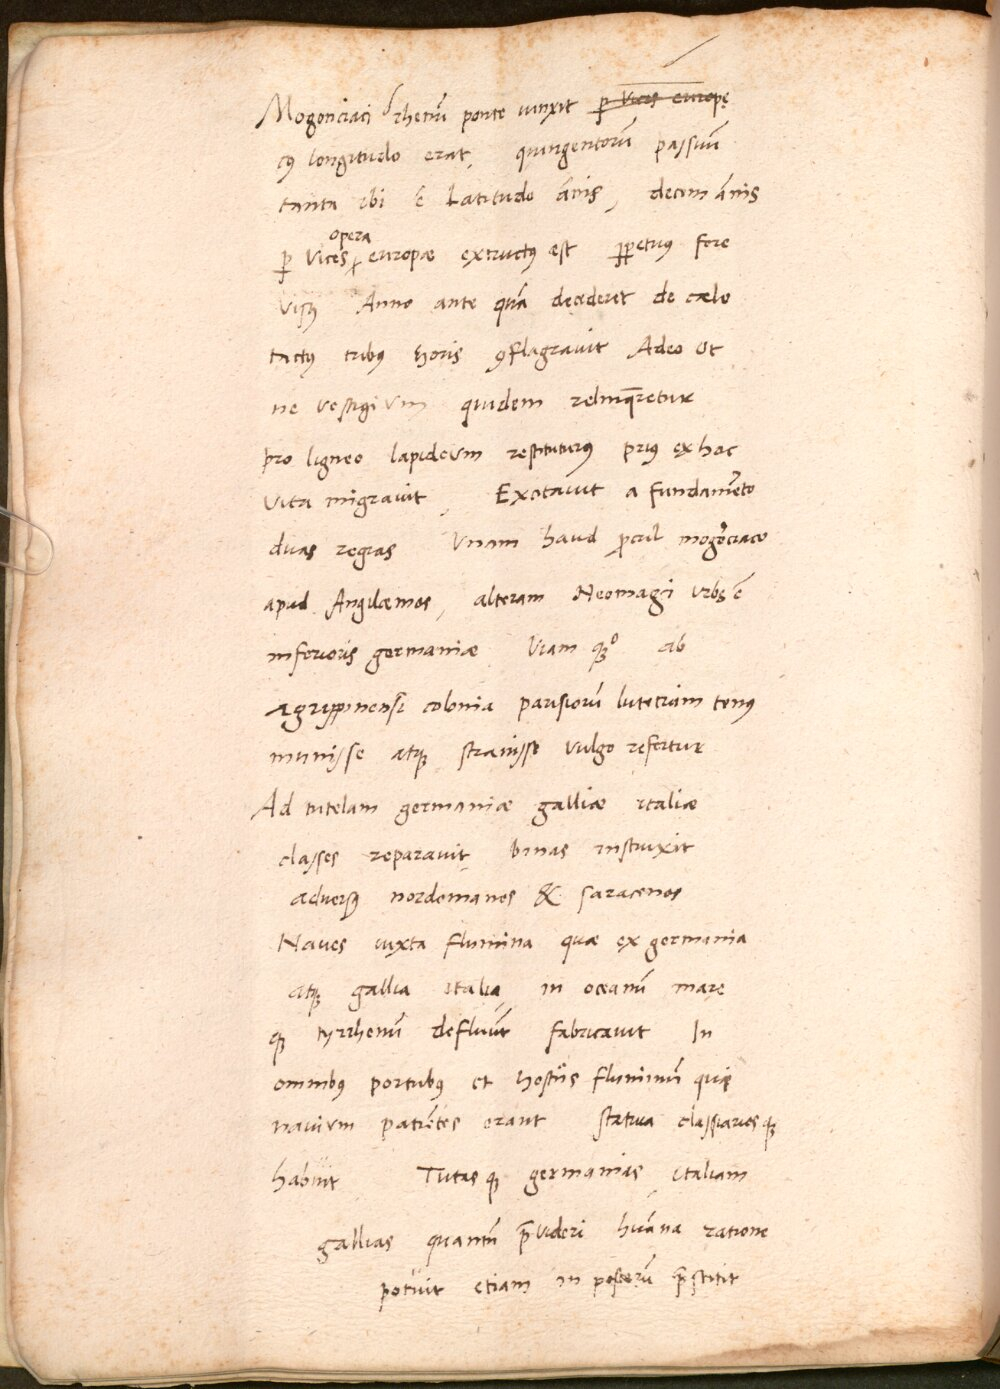 Mogonciaci rhenū ponte iunxit p̱ vices europę
cꝰ longitudo erat, quingentorū passuū
tanta ibi ē Latitudo āĩis, decem ānis
p̱ vices opera europæ extructꝰ æst p̱petuꝰ fore
visꝰ Anno ante quā decideret de cælo
tactꝰ tribꝰ horis ꝯflagravit Adeo Ut
ne vestigium quidem relinqueretur
pro ligneo lapideum restituturꝰ priꝰ ex hac
vita migravit, Excitavit a fundamēto
duas regias Unam haud procul mogōciaco
apud Angilæmos, alteram Neomagi urbs ē
inferioris germaniæ Viam qꝫº ab
agrippinensi colonia parisiorū lutetiam tenꝰ
munisse atqꝫ stravisse vulgo refertur
Ad tutelam germaniæ galliæ italiæ
classes reparavit binas instruxit
adversꝰ nordomanos & saracenos
Naves iuxta flumina quæ ex germania
atqꝫ gallia italia, in oceanū mare
qꝫ tyrrhenū defluūt fabricavit In
omnibꝰ portubꝰ et hostiis fluminū quę
navium patiētes erant stativa classiarios qꝫ
habuit Tutas qꝫ germanias, italiam
gallias quantū p̄videri humāna ratione
potuit etiam in posterū p̄stitit